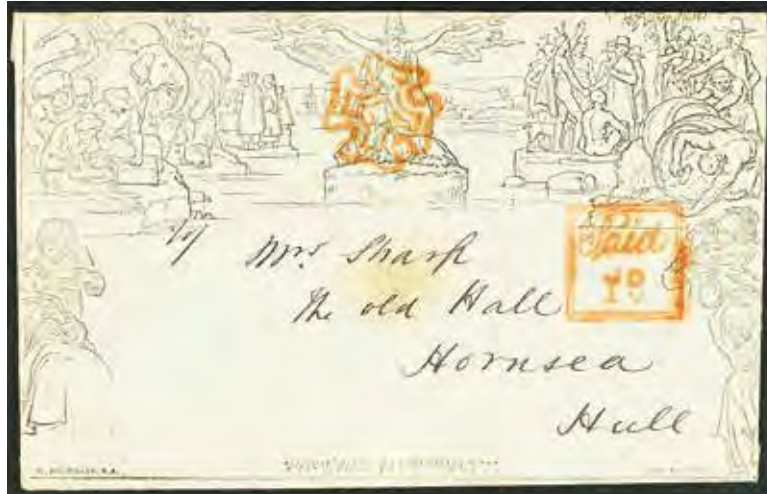 Paid
1D
Mrs Sharp
The old Hall
Hornsea
Hull